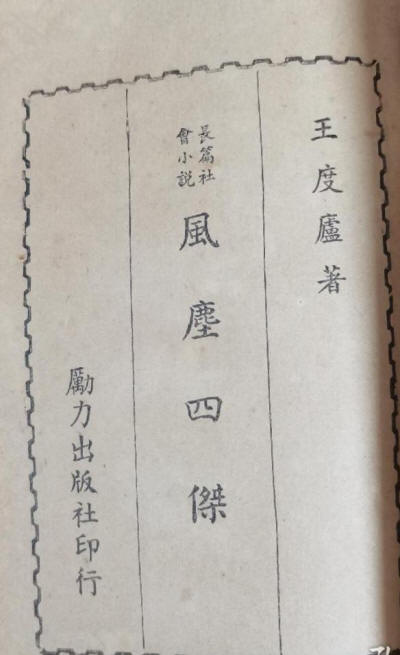 王度廬著
長篇社
會小説
風塵四傑
勵力出版社印行